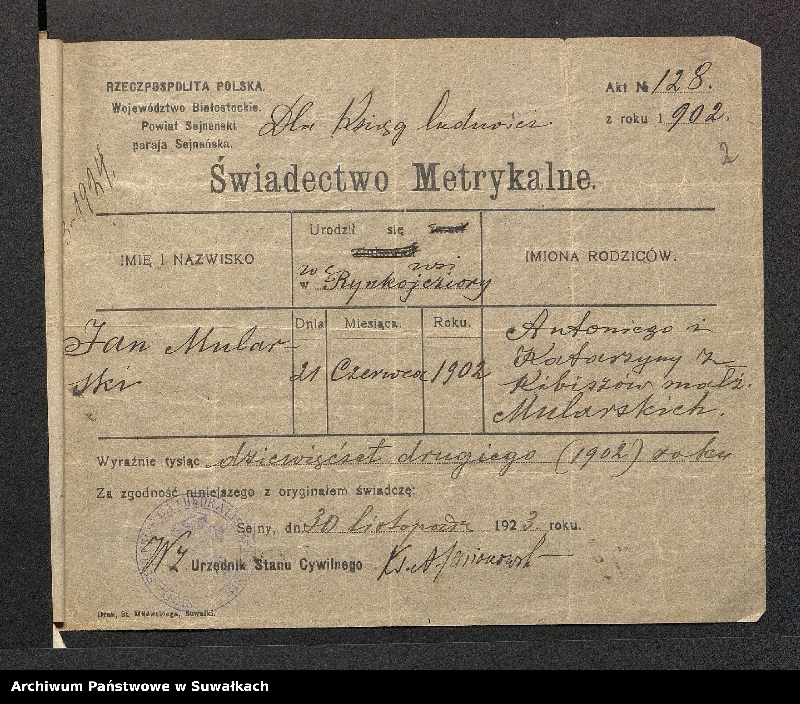 RZECZPOSPOLITA POLSKA.
Województwo Białostockie.
Powiat Sejneński
paraja Sejneńska.
Akt № 128.
z roku 1 902.
Dla Ksiąg ludności
2
1924.
Świadectwo Metrykalne.
IMIĘ I NAZWISKO
Urodził się
we wsi
w Rynkojeziory
IMIONA RODZICÓW.
Dnia
Miesiąca.
Roku.
Jan Mular-
ski
21
Czerwca
1902
Antoniego i
Katarzyny z
Kibiszów małż.
Mularskich.
Wyraźnie tysiąc dziewięćset drugiego (1902) roku
Za zgodność niniejszego z oryginałem świadczę:
Sejny, dn. 30 listopada 1923 roku.
Wz Urzędnik Stanu Cywilnego Ks. A.
Druk. St. Milewskiego, Suwałki.
Archiwum Państwowe w Suwałkach